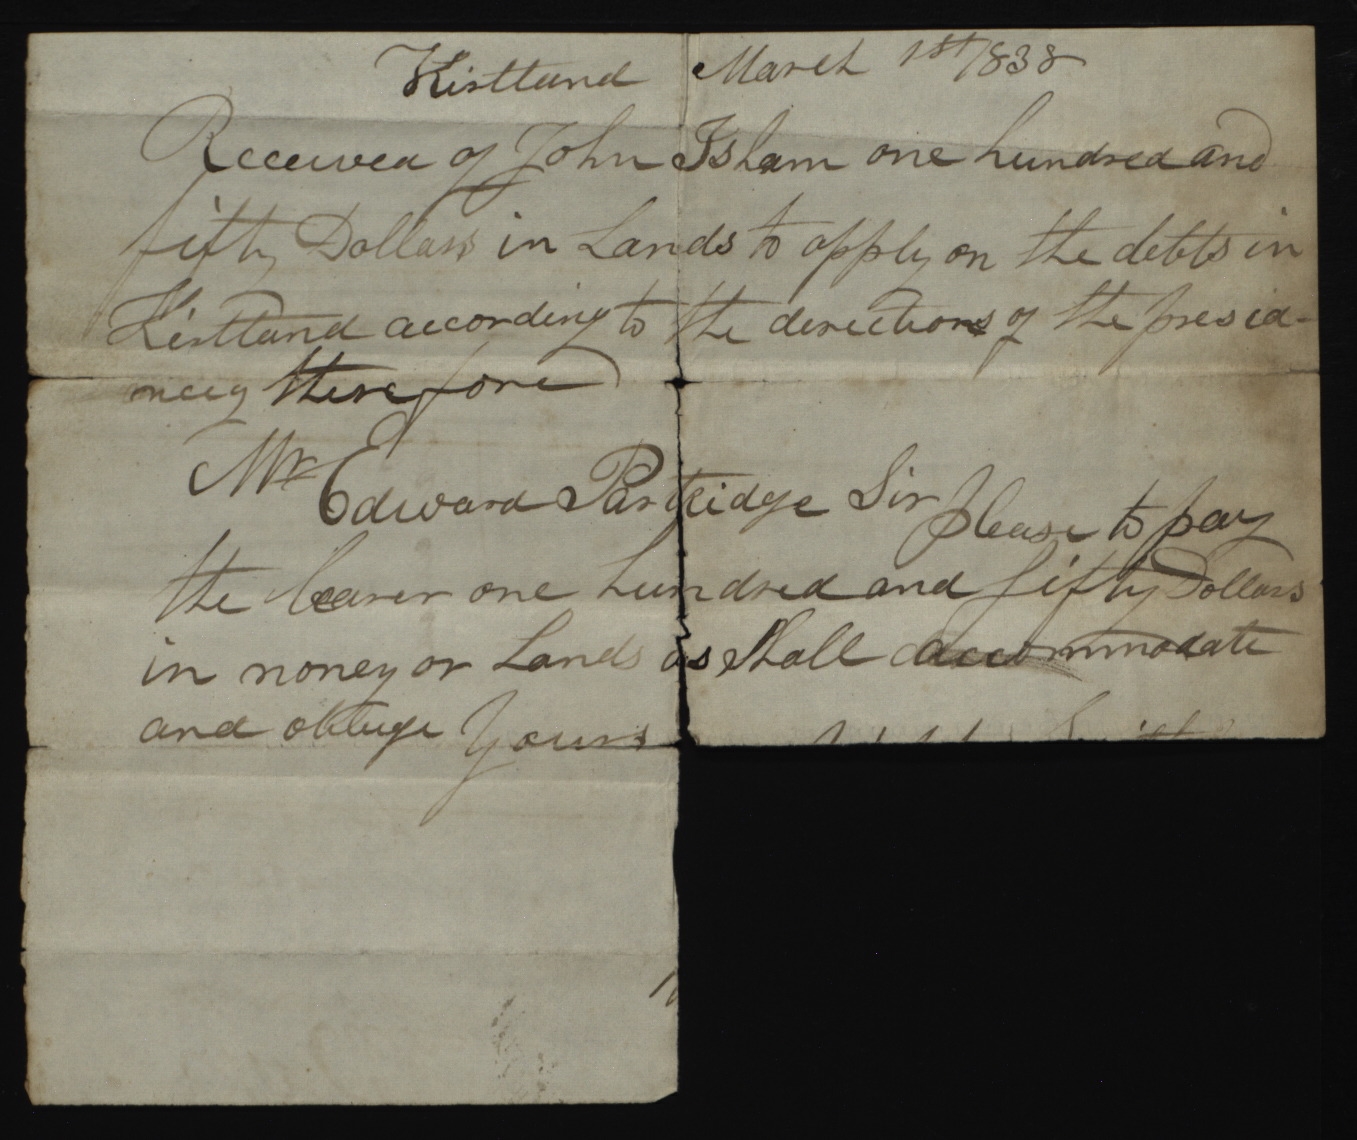 Kirtland March 1st 1838
Received of John Isham one hundred and
fifty Dollars in Lands to apply on the debts in
Kirtland according to the directions of the presid-
ncey therefore
Mr Edward Partridge Sir please to pay
the bearer one hundred and fifty Dollars
in money or Lands as shall accommodate
and obliege Yours